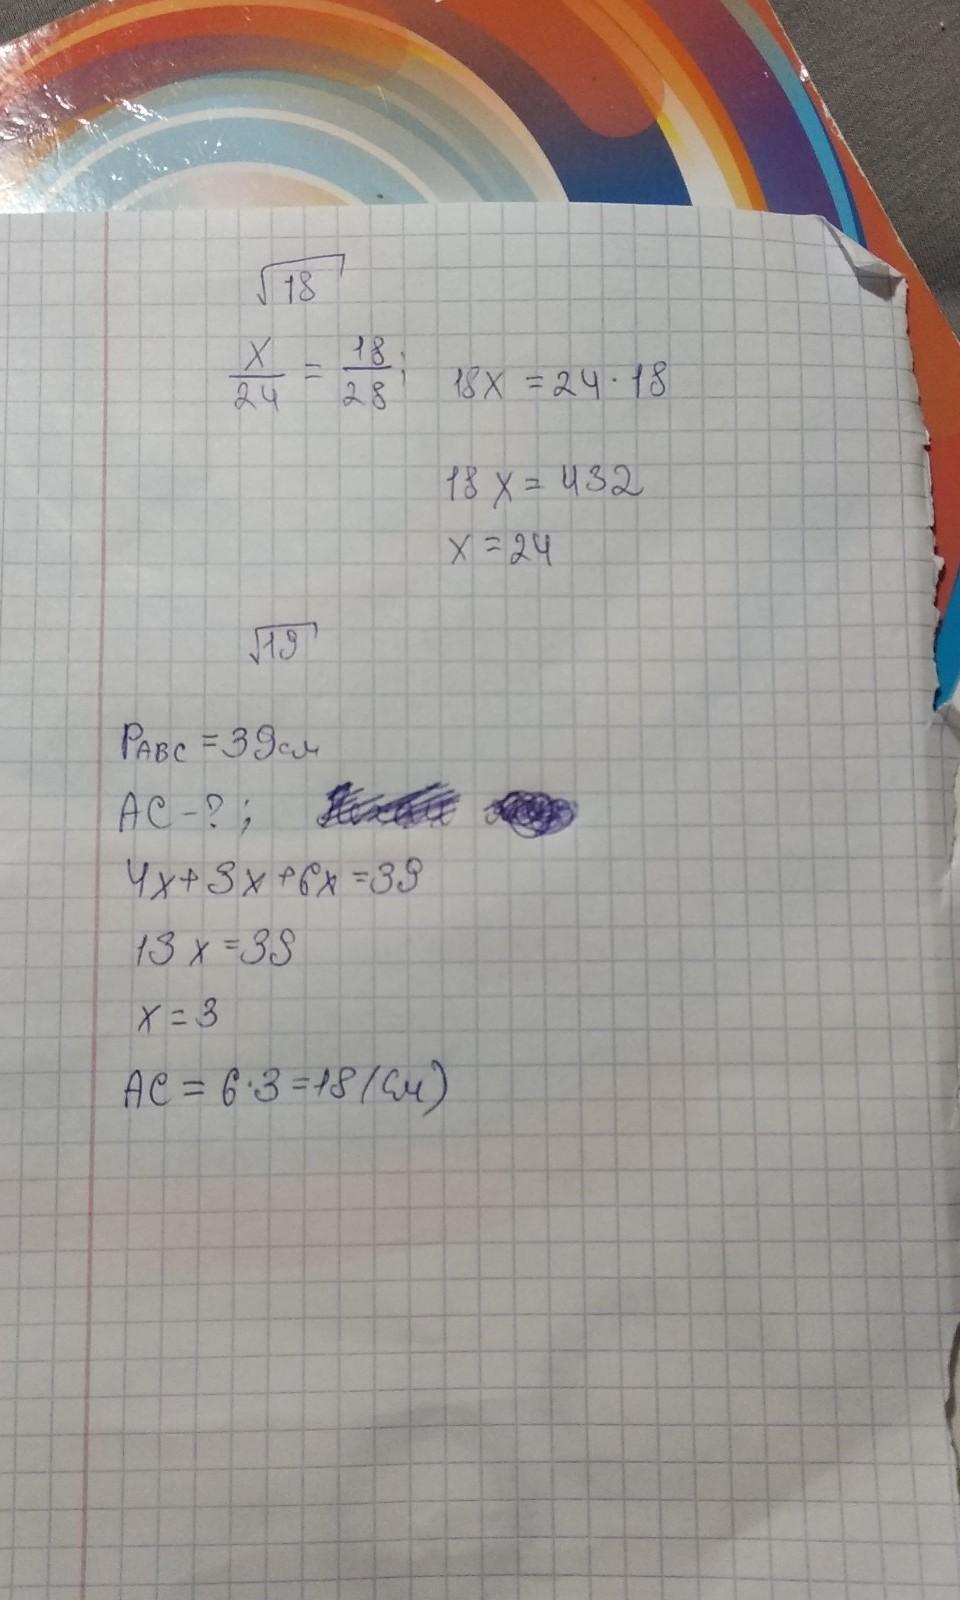 √18
x/24 = 18/28; 18x = 24 · 18
18x = 432
x = 24
√19
PABC = 39см
AC - ?;
4x + 3x + 6x = 39
13x = 39
x = 3
AC = 6 · 3 = 18 (см)